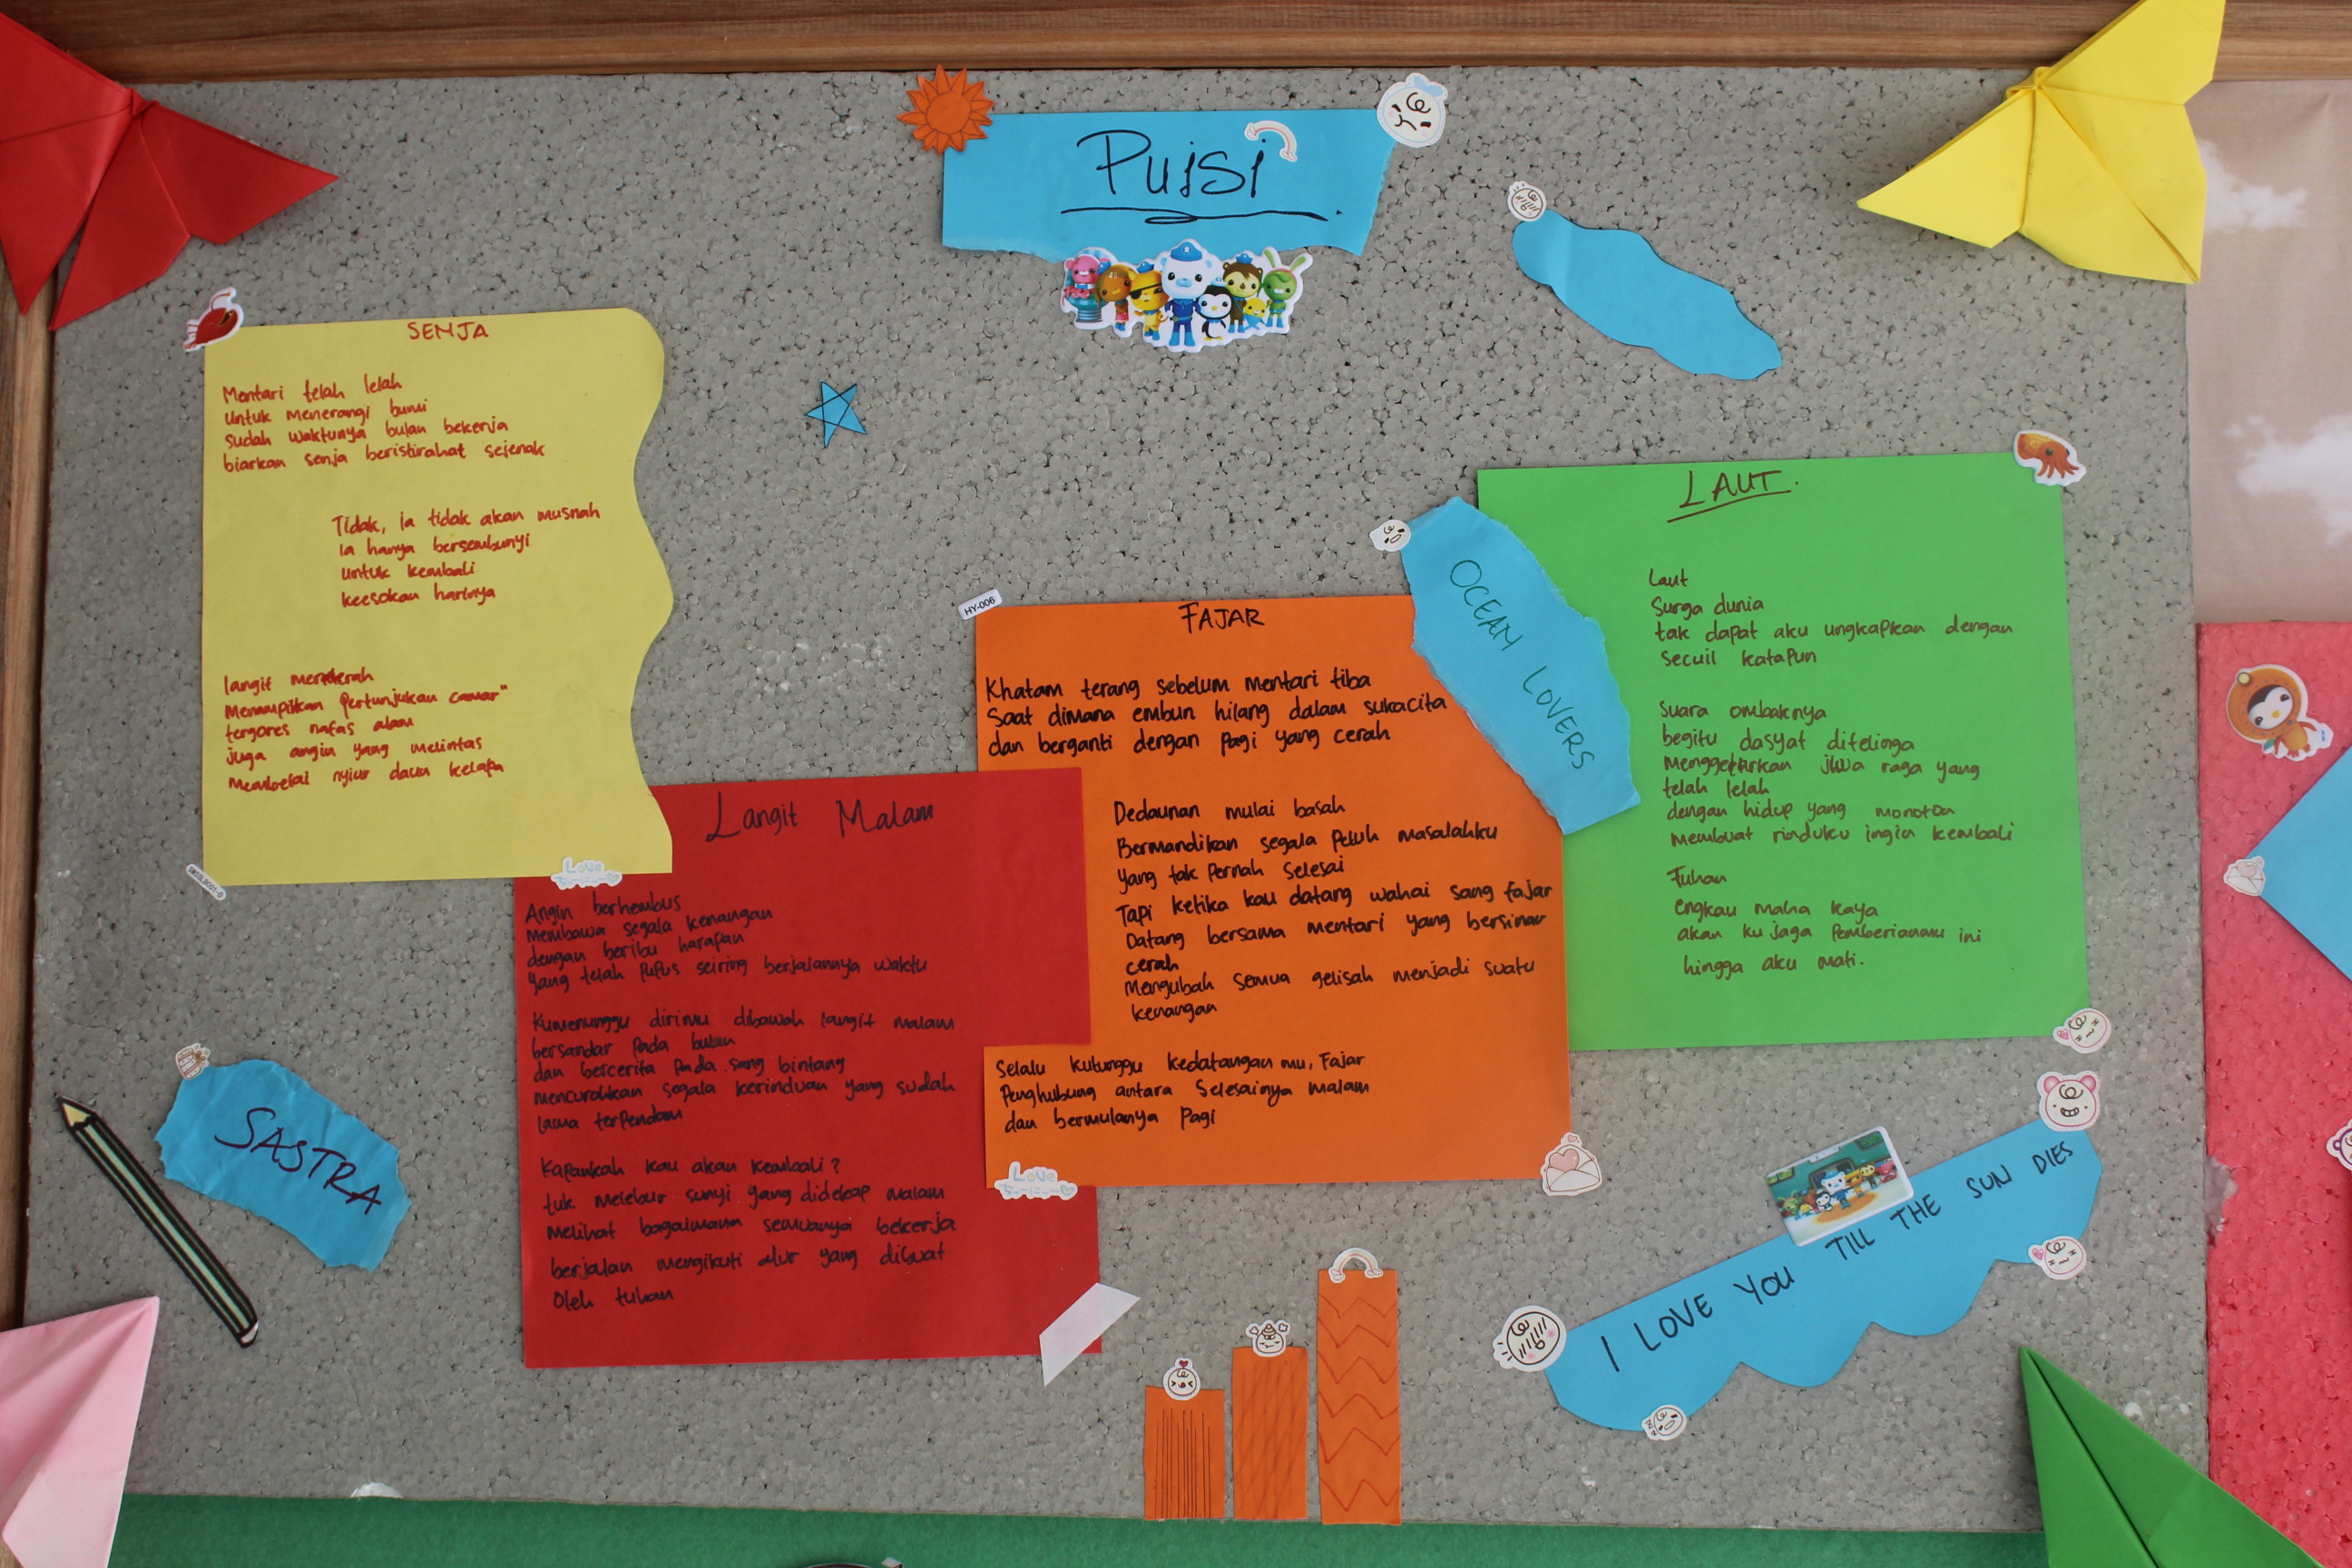 Puisi
SENJA
Mentari telah lelah
Untuk menerangi bumi
Sudah waktunya bulan bekerja
biarkan senja beristirahat sejenak
Tidak, ia tidak akan musnah
Ia hanya bersembunyi
untuk kembali
keesokan harinya
langit memerah
Menampilkan Pertunjukan camar"
tergores nafas alam
juga angin yang melintas
Membelai nyiur daun kelapa
Langit Malam
Angin berhembus
Membawa segala kenangan
dengan beribu harapan
Yang telah Pupus seiring berjalannya waktu
Kumenunggu dirimu dibawah langit malam
bersandar Pada bulan
dan bercerita Pada sang bintang
mencurahkan segala kerinduan yang sudah
lama terpendam
Kapankah kau akan kembali?
tuk melebur sunyi yang didekap malam
Melihat bagaimana semuanya bekerja
berjalan mengikuti alur yang dibuat
Oleh tuhan
HY-006
FAJAR
Khatam terang sebelum mentari tiba
Saat dimana embun hilang dalam sukacita
dan berganti dengan Pagi yang cerah
Dedaunan mulai basah
Bermandikan segala Peluh masalahku
Yang tak Pernah Selesai
Tapi ketika kau datang wahai sang fajar
Datang bersama mentari yang bersinar
cerah
Mengubah semua gelisah menjadi suatu
kenangan
Selalu kutunggu kedatangan mu, Fajar
Penghubung antara Selesainya malam
dan bermulanya Pagi
OCEAN LOVERS
LAUT.
Laut
Surga dunia
tak dapat aku ungkapkan dengan
Secuil kataPun
Suara ombaknya
begitu dasyat ditelinga
Menggetarkan jiwa raga yang
telah lelah
dengan hidup yang monoton
membuat rinduku ingin kembali
Tuhan
engkau maha kaya
akan ku jaga Pemberianmu ini
hingga aku mati.
SASTRA
Love
Love
I LOVE YOU TILL THE SUN DIES